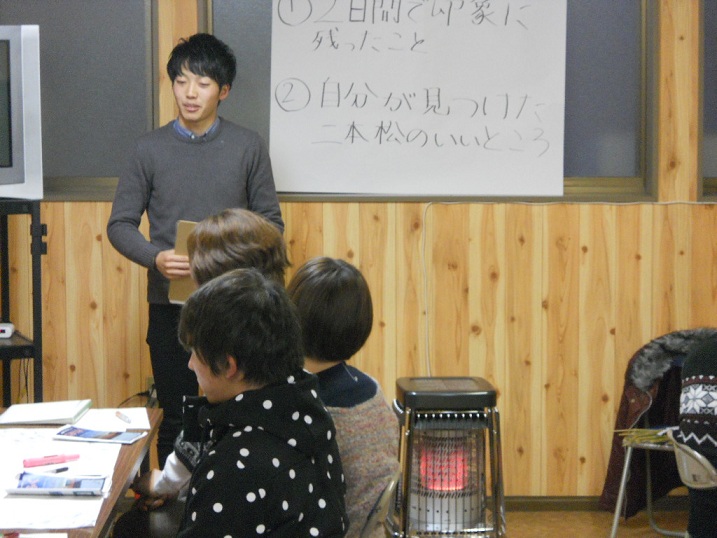 ①2日間で印象に
残ったこと
②自分が見つけた
二本松のいいところ